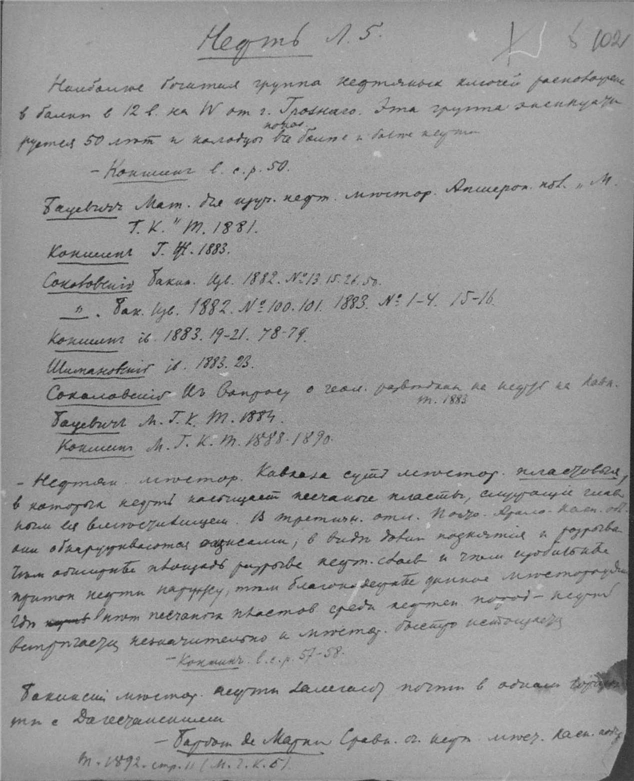 Нефть Л. 5.
102
Наиболее богатая группа нефтяных ключей расположена
в балке в 12 в. на W от г. Грознаго. Эта группа эксплуати
руется 50 лет и колодцы все более и более
Коншин в. с. р. 50.
Бацевичъ Мат. для изуч. нефт. местор. Апшерон. пов. „М.
Г. К." Т. 1881.
Коншинъ Г. Ж. 1883.
Соколовский Бакин. Изв. 1882. № 13. 15. 26. 50.
" . Бак. Изв. 1882. № 100. 101. 1883. № 1-4. 15-16.
Коншинъ ib. 1883. 19-21. 78-79.
Шимановский ib. 1883. 23.
Соколовский Къ вопросу о геол. разведках на нефть на Кавк.
Т. 1883
Бацевичъ М. Г. К. Т. 1884.
Коншинъ М. Г. К. Т. 1888. 1890.
- Нефтян. местор. Кавказа суть местор. пластовыя,
в которых нефть насыщает песчаные пласты, служащие глав
ным ея вместилищем. В третичн. отл.
они обнаруживаются, в виде поднятия и разрыва
Чем обширнее площадь разрыва нефт. и чем обильнее
приток нефти наружу, тем благонадежнее данное месторожд.
Где нет песчаных пластов среди нефтен. пород - нефть
встречается незначительно и местор. быстро истощается
- Коншинъ. в. с. р. 57-58.
Бакинский местор. нефти залегают почти в одном
ти с Дагестанскими
- Барбот де Марни Сравн. о. нефт. мест. Касп.
Т. 1892. стр. 11 (М. Г. К. 5).